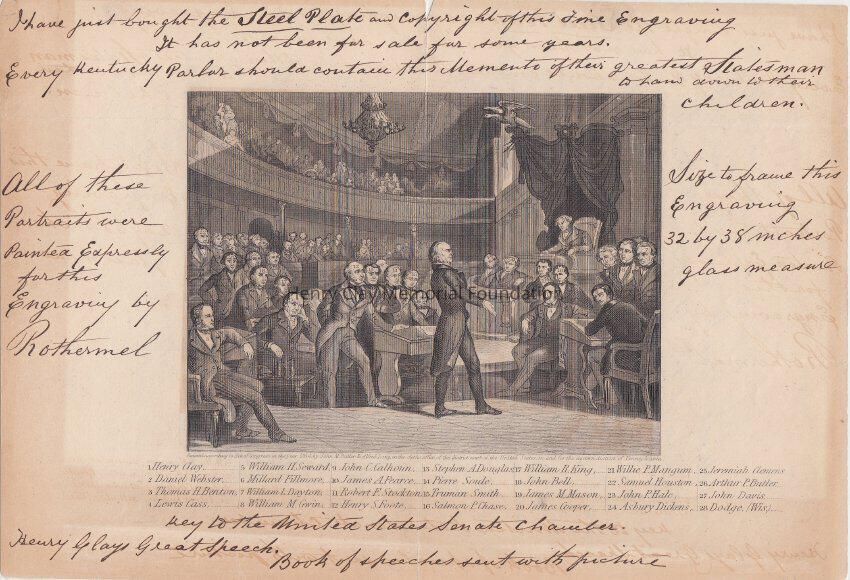 I have just bought the Steel Plate and Copyright of this Fine Engraving
It has not been for sale for some years.
Every Kentucky Parlor should contain this Memento of their greatest Statesman
to hand down to their
children.
All of these
Portraits were
Painted Expressly
for this
Engraving by
Rothermel
Size to frame this
Engraving
32 by 38 inches
glass measure
Henry Clay Memorial Foundation
1 Henry Clay.
2 Daniel Webster.
3 Thomas H. Benton.
4 Lewis Cass.
5 William H. Seward.
6 Millard Fillmore.
7 William L. Dayton.
8 William M. Gwin.
9 John C. Calhoun.
10 James A. Pearce.
11 Robert F. Stockton.
12 Henry S. Foote.
13 Stephen A. Douglas.
14 Pierre Soule.
15 Truman Smith.
16 Salmon P. Chase.
17 William R. King.
18 John Bell.
19 James M. Mason.
20 James Cooper.
21 Willie P. Mangum.
22 Samuel Houston.
23 John P. Hale.
24 Asbury Dickens.
25 Jeremiah Clemens
26 Arthur P. Butler.
27 John Davis.
28 Dodge, (Wis.)
Key to the United States Senate Chamber.
Henry Clays Great Speech.
Book of speeches sent with picture